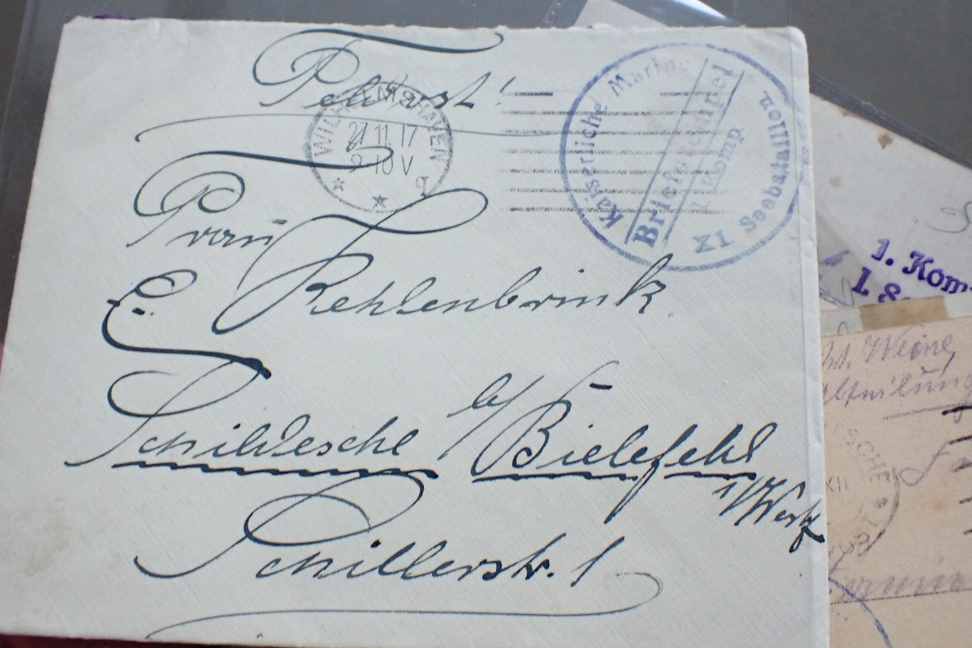 Feldpost!
WILHELMSHAVEN
21 11 17
9-10 V
Kaiserliche Marine
Briefstempel
Komp
XI Seebataillon
Frau
E. Kehlenbrink.
Schildesche b/ Bielefeld
i/Westf
Schillerstr. 1
1. Kom